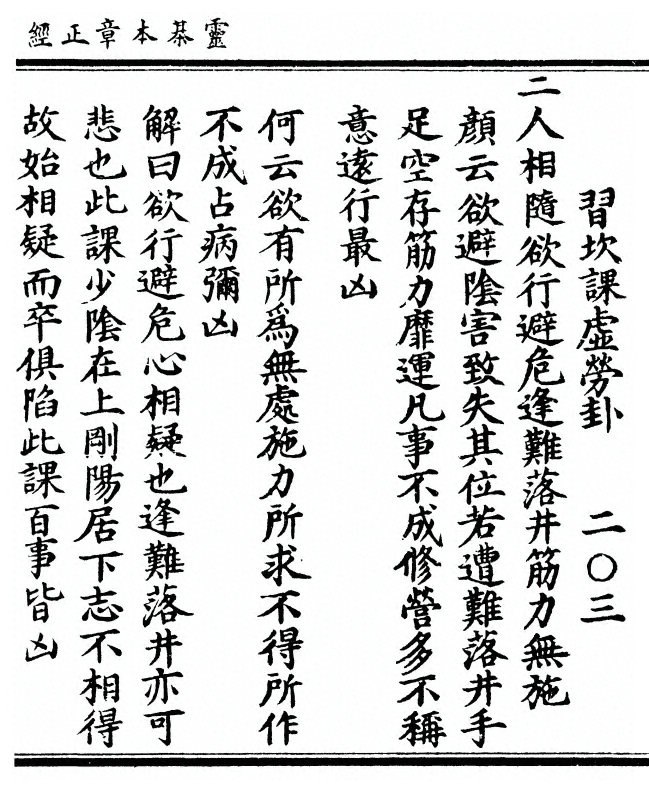 靈棊本章正經
習坎課虛勞卦　二〇三
二人相隨欲行避危逢難落井筋力無施
顏云欲避陰害致失其位若遭難落井手
足空存筋力靡運凡事不成修營多不稱
意遠行最凶
何云欲有所為無處施力所求不得所作
不成占病彌凶
解曰欲行避危心相疑也逢難落井亦可
悲也此課少陰在上剛陽居下志不相得
故始相疑而卒俱陷此課百事皆凶